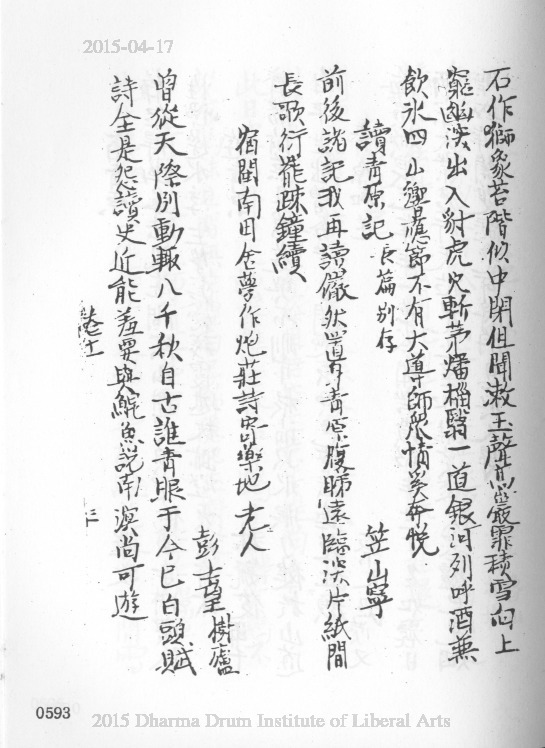 2015-04-17
石作獅象苔階似中閉但聞漱玉聲高巖霏積雪向上
窮幽澹出入豺虎穴斬茅燔榾一道銀河列呼酒兼
飲冰四山響應節不有大導師衆憤奚奔悅
讀青原記 長篇別存 笠山寧
前後諸記我再讀儼然置身青原腹睇遠臨淡片紙間
長歌行罷疎鐘續
宿閩南田舍夢作炮莊詩寄樂地老人
彭士望 樹廬
曾從天際別動輒八千秋自古誰青眼于今已白頭賦
詩全是怨讀史近能羞要與鯤魚說南溟尚可遊
卷十
0593
2015 Dharma Drum Institute of Liberal Arts